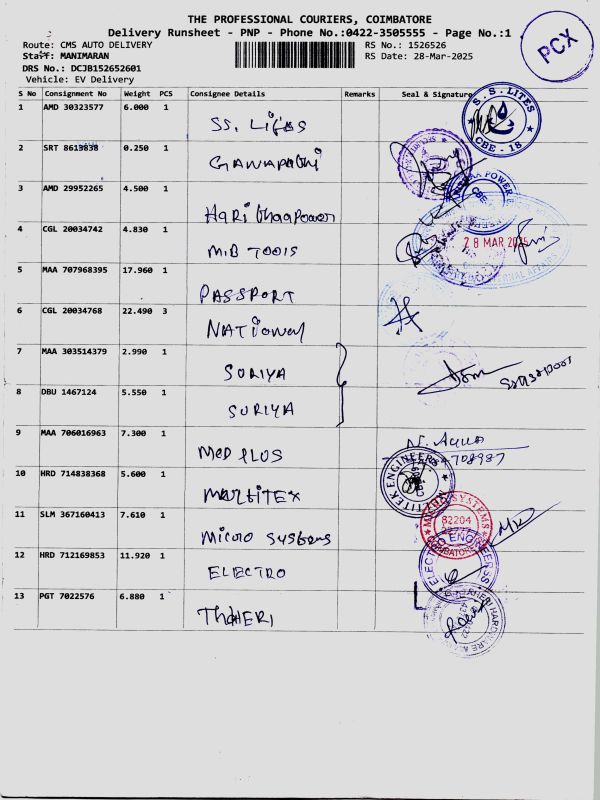 THE PROFESSIONAL COURIERS, COIMBATORE
Delivery Runsheet - PNP - Phone No.:0422-3505555 - Page No.:1
PCX
Route: CMS AUTO DELIVERY
RS No.: 1526526
Staff: MANIMARAN
RS Date: 28-Mar-2025
DRS No.: DCJB152652601
Vehicle: EV Delivery
S No Consignment No Weight PCS Consignee Details Remarks Seal & Signature
1 AMD 30323577 6.000 1 SS. Lites
S. S. LITES CBE - 18
2 SRT 8613838 0.250 1 GANAPathi
3 AMD 29952265 4.500 1 HaRi bhaaPower
POWER CBE
4 CGL 20034742 4.830 1 M.B TOOlS
28 MAR 2025
5 MAA 707968395 17.960 1 PASSPORT
6 CGL 20034768 22.490 3 NATional
7 MAA 303514379 2.990 1 SURIYA
8 DBU 1467124 5.550 1 SURIYA
9 MAA 706016963 7.300 1 MED PLUS
10 HRD 714838368 5.600 1 MULTITEX
ENGINEERS
11 SLM 367160413 7.610 1 Micro Systems
SYSTEMS 82204 COIMBATORE
12 HRD 712169853 11.920 1 ELECTRO
13 PGT 7022576 6.880 1 THAHERI
HARDWARE